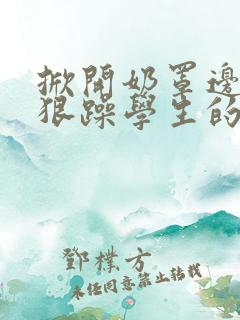 掀開奶罩邊
狠躁學生的
鄧樸方
未经同意禁止转载